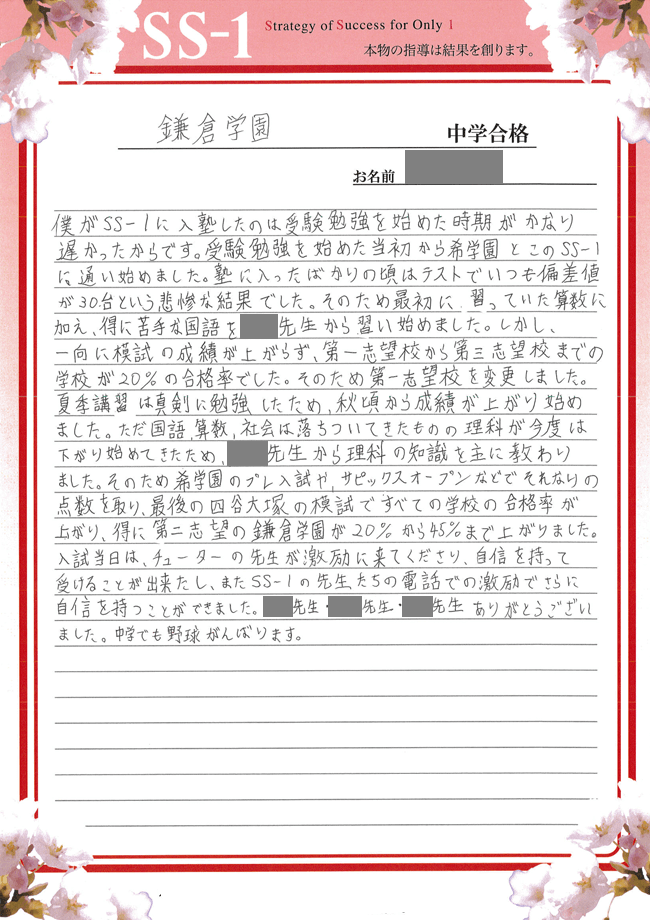 SS-1 Strategy of Success for Only 1
本物の指導は結果を創ります。
鎌倉学園 中学合格
お名前
僕がSS-1に入塾したのは受験勉強を始めた時期がかなり
遅かったからです。受験勉強を始めた当初から希学園とこのSS-1
に通い始めました。塾に入ったばかりの頃はテストでいつも偏差値
が30台という悲惨な結果でした。そのため最初に、習っていた算数に
加え、得に苦手な国語を先生から習い始めました。しかし、
一向に模試の成績が上がらず、第一志望校から第三志望校までの
学校が20%の合格率でした。そのため第一志望校を変更しました。
夏季講習は真剣に勉強したため、秋頃から成績が上がり始め
ました。ただ国語、算数、社会は落ちついてきたものの理科が今度は
下がり始めてきたため、先生から理科の知識を主に教わり
ました。そのため希学園のプレ入試や、サピックスオープンなどでそれなりの
点数を取り、最後の四谷大塚の模試ですべての学校の合格率が
上がり、得に第二志望の鎌倉学園が20%から45%まで上がりました。
入試当日は、チューターの先生が激励に来てくださり、自信を持って
受けることが出来たし、またSS-1の先生たちの電話での激励でさらに
自信を持つことができました。先生・先生・先生ありがとうござい
ました。中学でも野球がんばります。